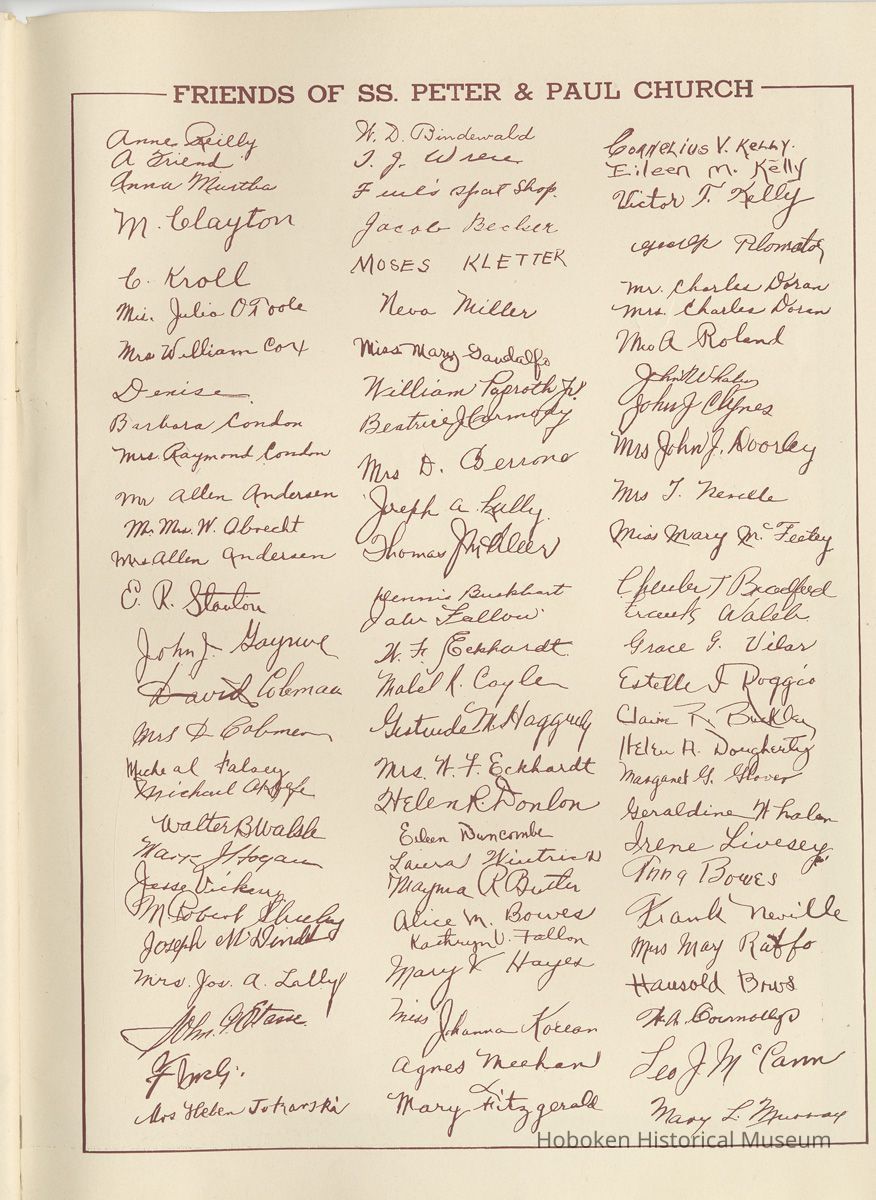 FRIENDS OF SS. PETER & PAUL CHURCH
Anne Reilly
A Friend
Anna Murtha
M. Clayton
C. Kroll
Mis. Julia O'Toole
Mrs William Cox
Denise
Barbara Condon
Mrs. Raymond Condon
Mr Allen Andersen
Mr. Mrs. W. Obrecht
Mrs Allen Andersen
E. R. Stanton
John J. Gaynor
David Coleman
Mrs D Colemen
Micheal Falsey
Michael
Walter B Walsh
Mark J Hogan
Jesse Vickery
M Robert
Joseph McDindt
Mrs. Jos. A. Lally
Mrs Helen
W. D. Bindewald
T. J. Wrenn
Spot Shop.
Jacob Becker
MOSES KLETTER
Neva Miller
Miss Mary Gandalfo
William Paproth Jr
Beatrice J Carmody
Mrs D. Cerrone
Joseph A. Lally
Thomas J McAleer
Dennis Burkhart
John Fallon
W. F. Eckhardt
Mabel R. Coyle
Gertrude M. Haggerty
Mrs. W. F. Eckhardt
Helen R. Donlon
Eileen Duncombe
Laura Wintrich
Mayma R Butler
Alice M. Bowes
Kathryn V. Fallon
Mary V Hayes
Miss Johanna Korean
Agnes Meehan
Mary Fitzgerald
Cornelius V. Kelly.
Eileen M. Kelly
Victor T. Kelly
Mr. Charles Doran
Mrs. Charles Doran
Mrs A Roland
John Whalen
John J Clynes
Mrs John J. Doorley
Mrs T. Neville
Miss Mary McFeeley
Bradford
Frank Walsh
Grace G. Vilar
Estelle I Roggio
Claire R. Buckley
Helen A. Dougherty
Margaret G. Glover
Geraldine Whalen
Irene Livesey
Anna Bowes
Frank Neville
Mrs May Raffo
Harold Bows
Leo J McCann
Mary L. Murray
Hoboken Historical Museum